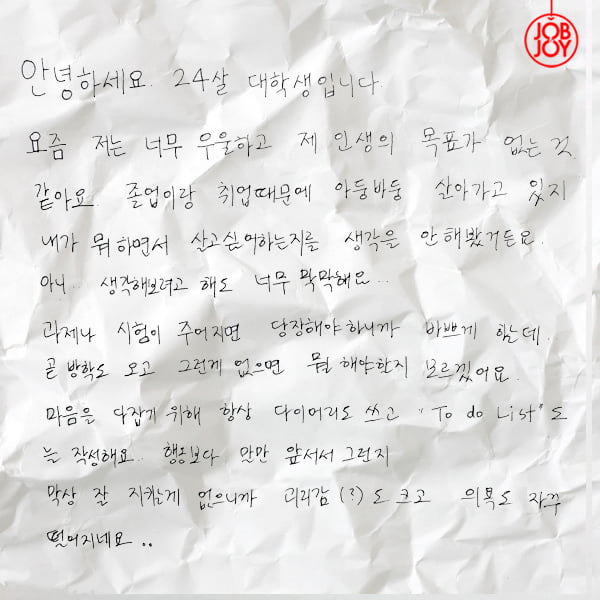 JOB
JOY
안녕하세요. 24살 대학생입니다.
요즘 저는 너무 우울하고 제 인생의 목표가 없는 것
같아요. 졸업이랑 취업때문에 아둥바둥 살아가고 있지
내가 뭐하면서 살고싶어하는지를 생각은 안해봤거든요.
아니.. 생각해보려고 해도 너무 막막해요...
과제나 시험이 주어지면 당장해야하니까 바쁘게 하는데.
곧 방학도 오고 그런게 없으면 뭘 해야한지 모르겠어요.
마음을 다잡기 위해 항상 다이어리도 쓰고 "To do List"도
는 작성해요.. 행동보다 말만 앞서서 그런지
막상 잘 지키는게 없으니까 괴리감(?)도 크고 의욕도 자꾸
떨어지네요..